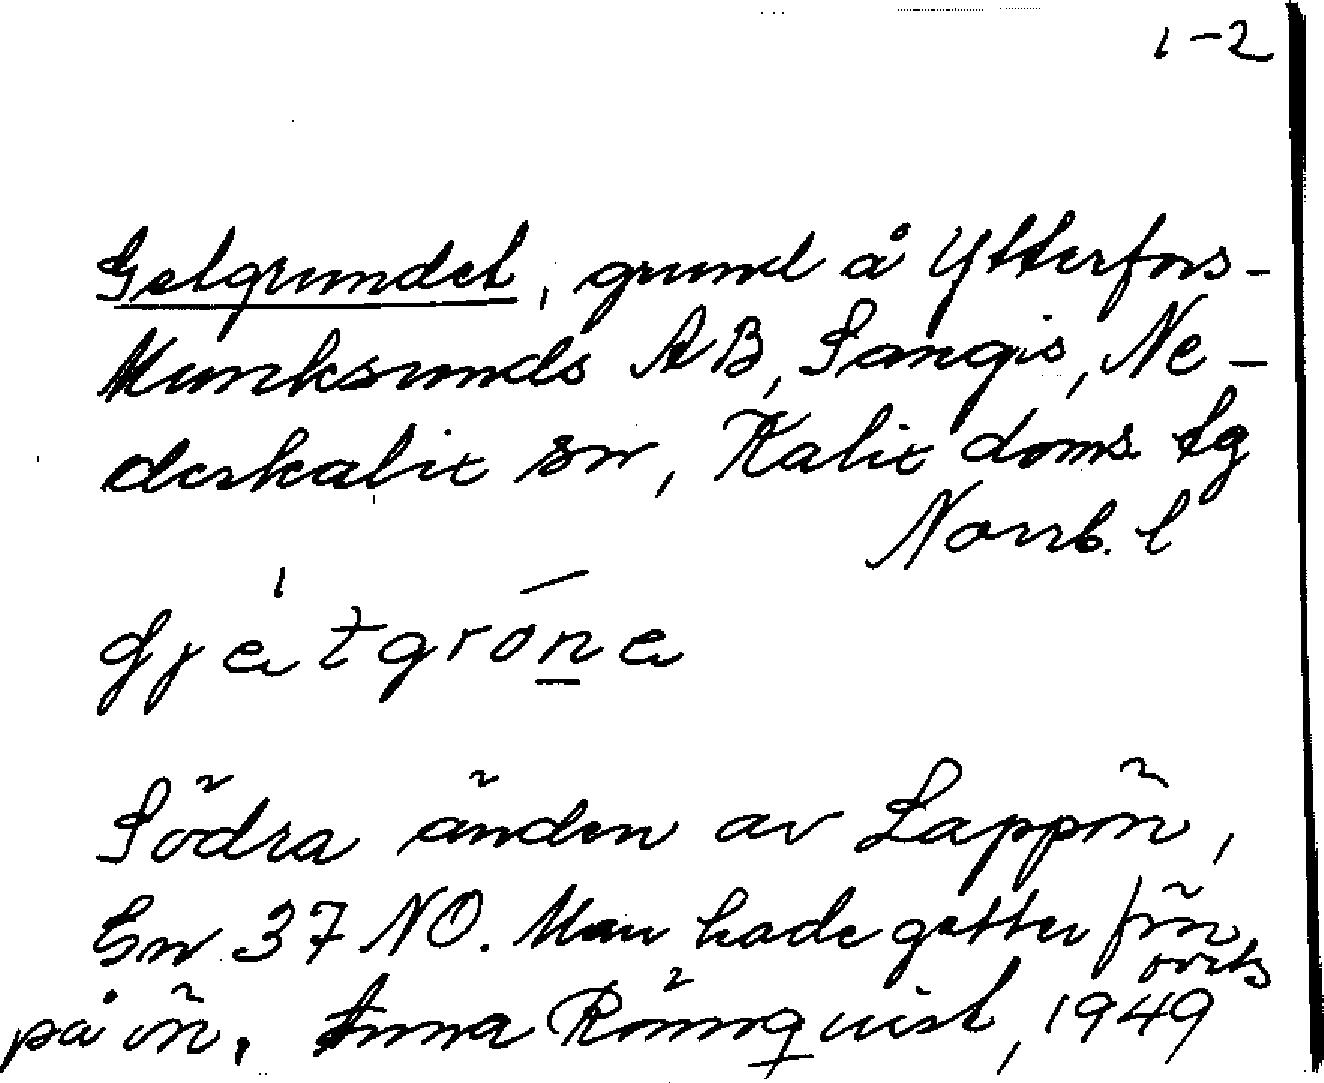 1-2
Getgrundet, grund å Ytterfors-
Munksunds AB, Sangis, Ne-
derkalix sn, Kalix doms tg
Norrb. l
Södra änden av Lappön,
37 NO. Man hade getter förr
på ön. Anna Rönnquist, 1949